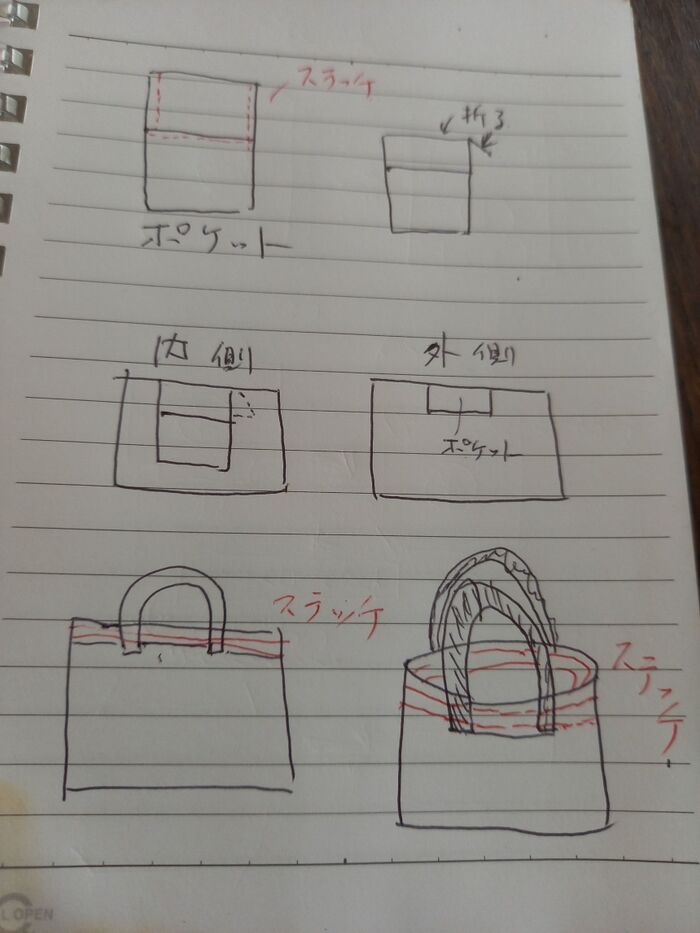 スラッチ
折る
ポケット
内側
外側
ポケット
スラッチ
ステッチ
L OPEN